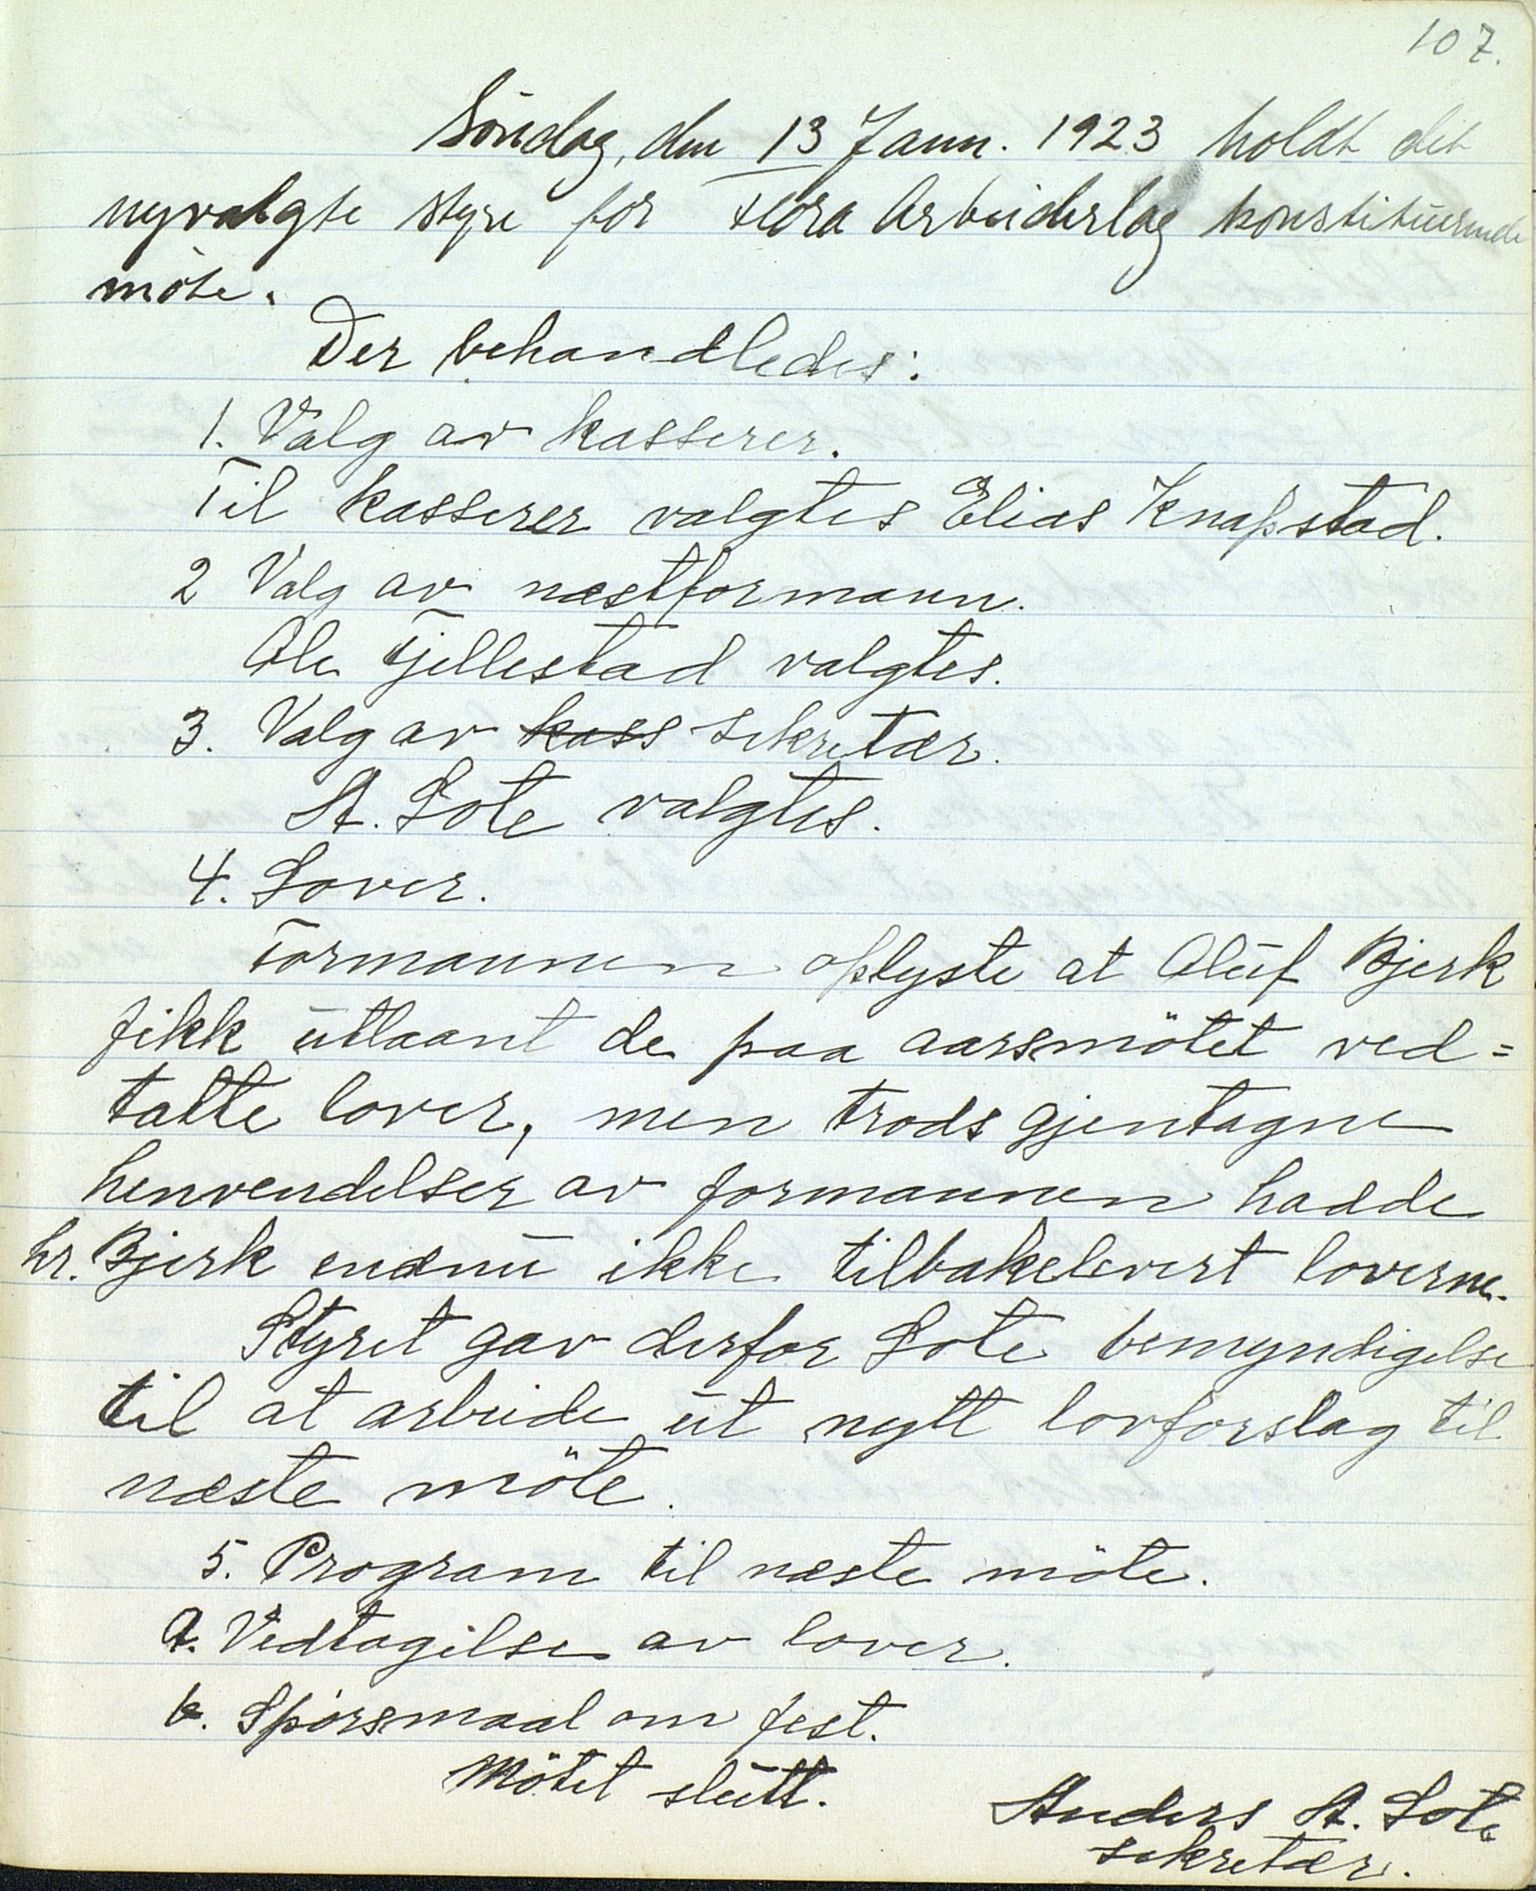 107.
Söndag, den 13 Jann. 1923 holdt det
nyvalgte styre for Flora Arbeiderlag konstituerende
möte.
Der behandledes:
1. Valg av kasserer.
Til kasserer valgtes Elias Knapstad.
2 Valg av næstformann.
Ole Fjellestad valgtes.
3. Valg av kass sekretær.
A. Lote valgtes.
4. Lover.
Formannen oplyste at Oluf Bjerk
fikk utlaant de paa aarsmötet ved=
tatte lover, men trods gjentagne
henvendelser av formannen hadde
hr. Bjerk endnu ikke tilbakelevert loverne.
Styret gav derfor Lote bemyndigelse
til at arbeide ut nytt lovforslag til
næste möte.
5. Program til næste möte.
a. Vedtagelse av lover.
b. Spörsmaal om fest.
Mötet slutt.
Anders A. Lote
sekretær.